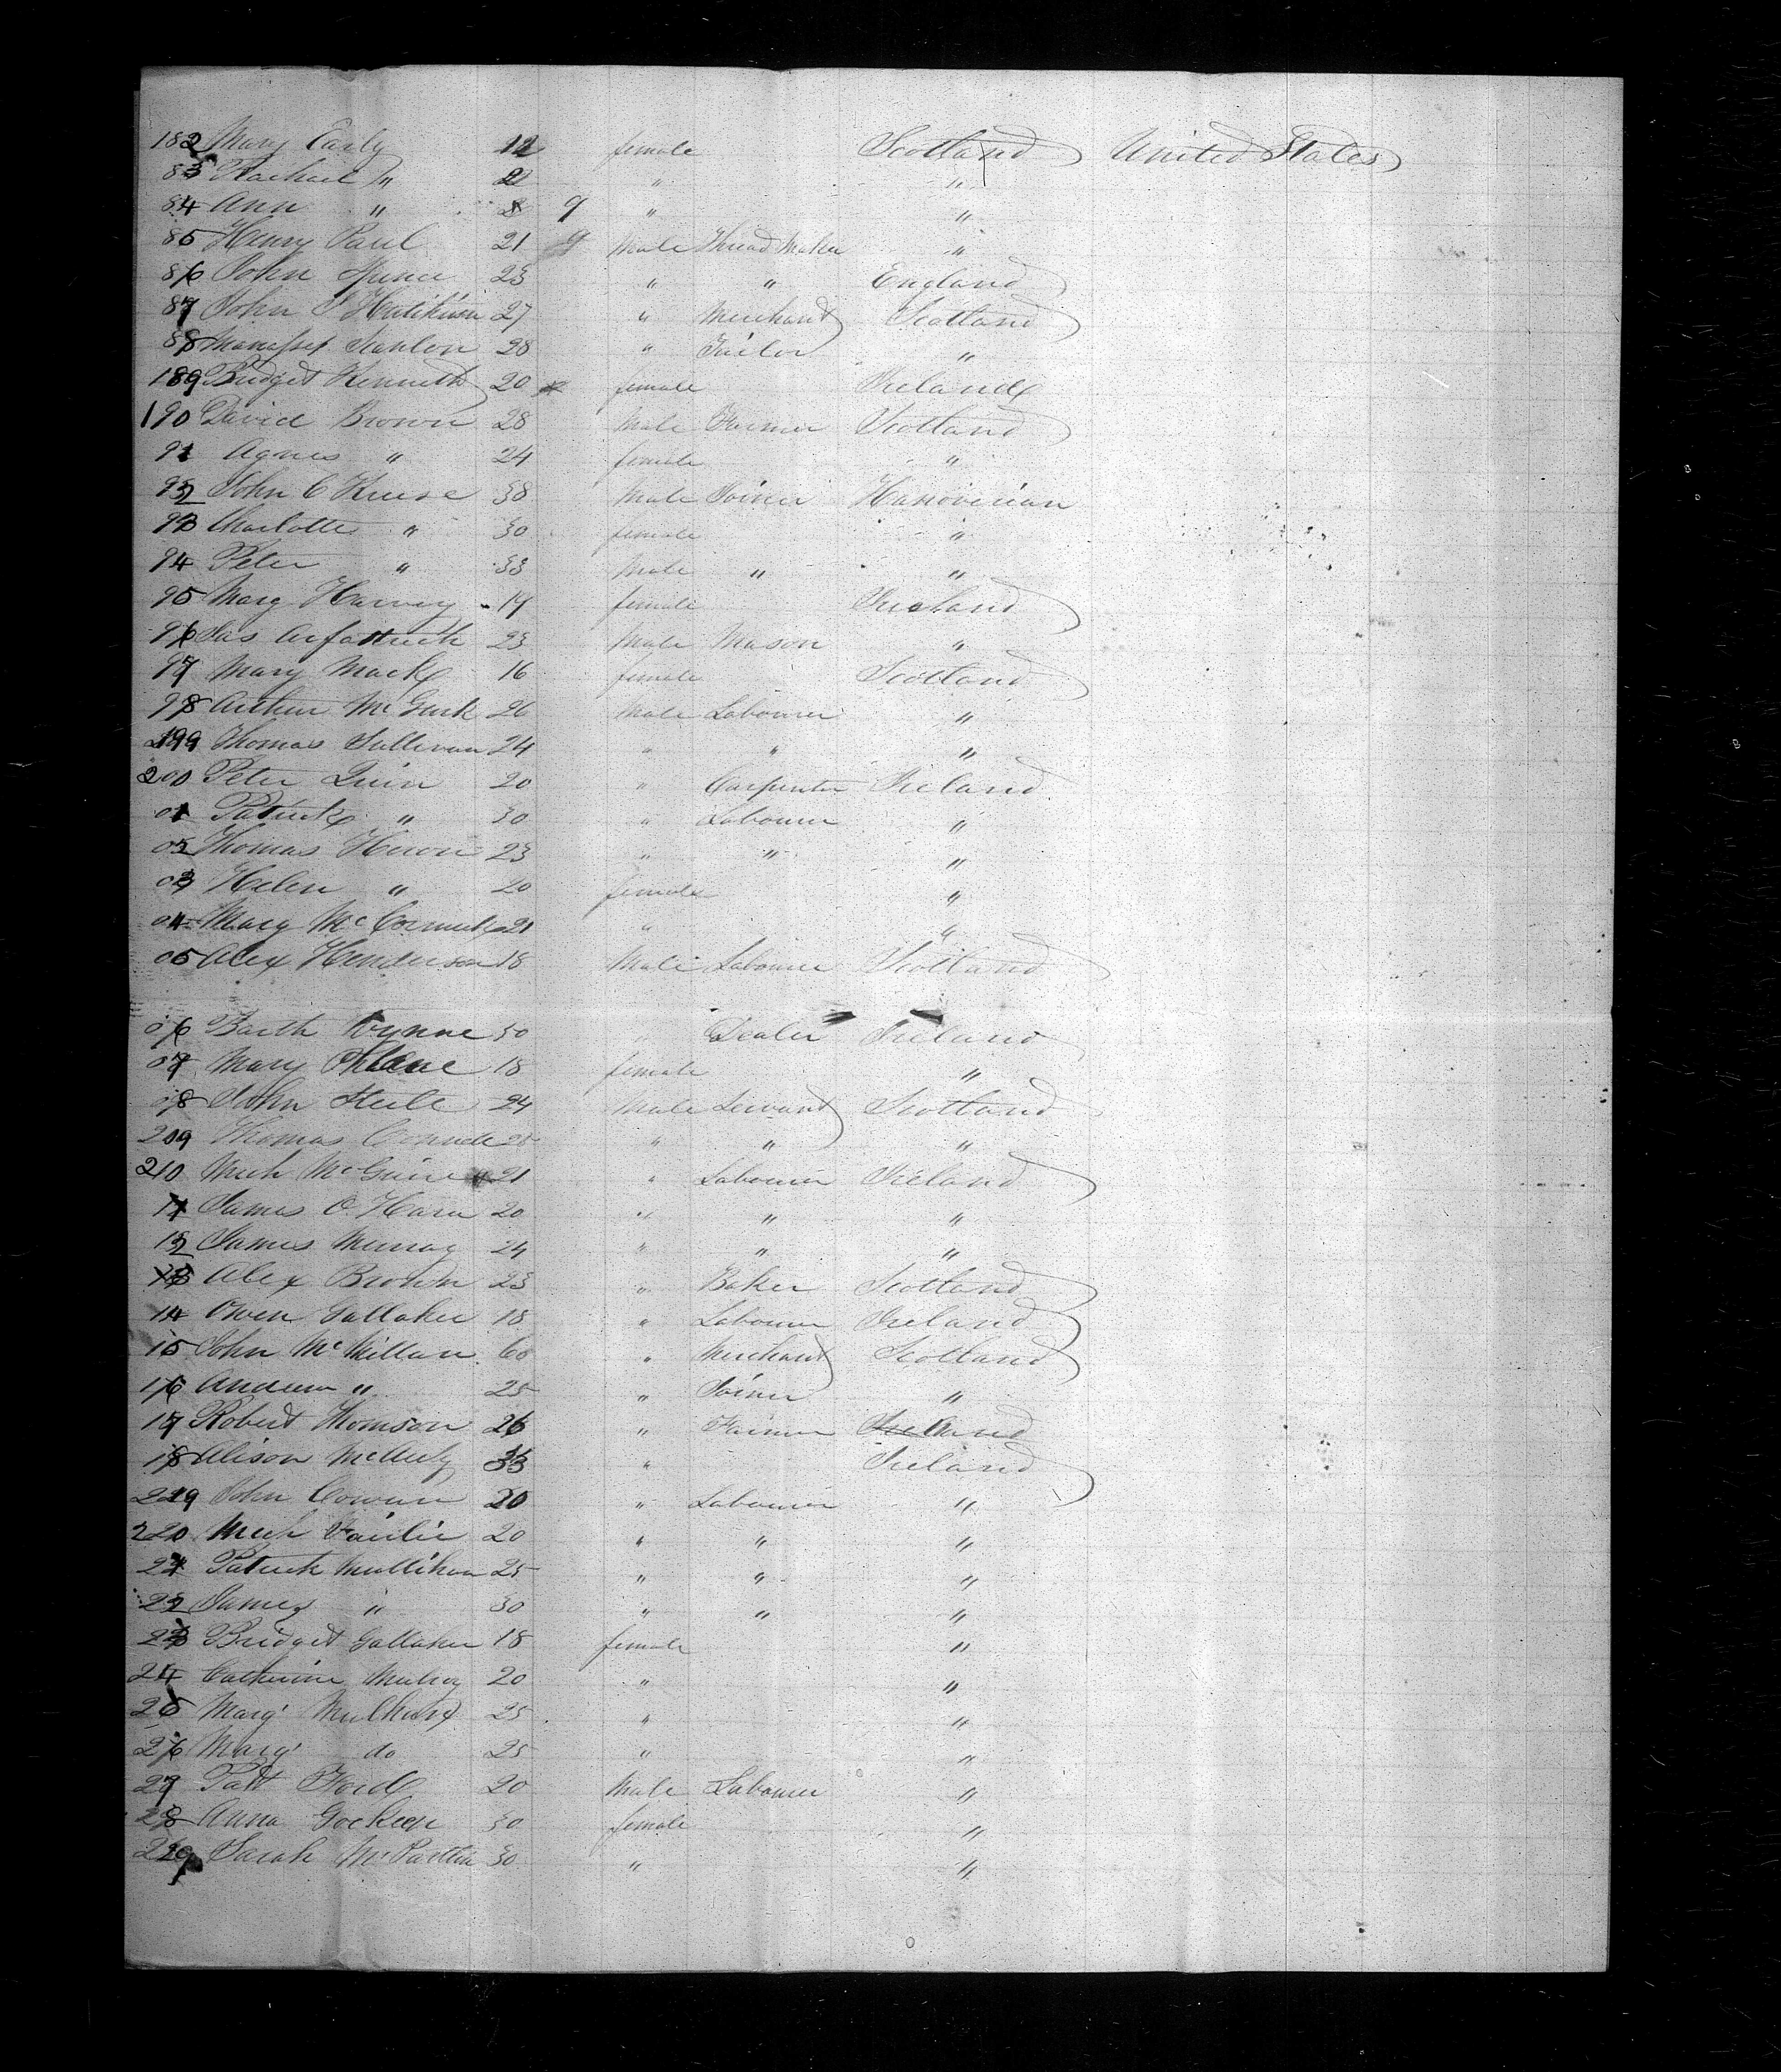 182 Mary Early 12 female Scotland United States
83 Rachael " 2 " "
84 Ann " 8 9 " "
85 Henry Paul 21 9 Male Thread Maker "
86 John Spence 23 " " England
87 John S 27 " Merchant Scotland
88 Manasses Hanlon 28 " Tailor "
189 Bridget Kenneth 20 female Ireland
190 David Brown 28 Male Farmer Scotland
91 Agnes " 24 female "
92 John C Kruse 38 Male Joiner Hanoverian
93 Charlotte " 30 female "
94 Peter " 33 Male " "
95 Mary Harvey 19 female Ireland
96 Jas 23 Male Mason "
97 Mary Mack 16 female Scotland
98 Arthur McGurk 26 Male Labourer "
199 Thomas Sullivan 24 " " "
200 Peter Quin 20 " Carpenter Ireland
01 Patrick " 30 " Labourer "
02 Thomas Heron 23 " " "
03 Helen " 20 female "
04 Mary McCormick 21 " "
05 Alex Henderson 18 Male Labourer Scotland
06 Barth 50 " Dealer Ireland
07 Mary 18 female "
08 John Steele 24 Male Servant Scotland
209 Thomas " " "
210 Mich McGuire 21 " Labourer Ireland
11 James O'Hara 20 " " "
12 James Murray 24 " " "
13 Alex Brown 23 " Baker Scotland
14 Owen Gallaher 18 " Labourer Ireland
15 John McMillan 60 " Merchant Scotland
16 Andrew " 25 " Joiner "
17 Robert Thomson 26 " Farmer Ireland
18 Alison 33 " Ireland
219 John Cowan 20 " Labourer "
220 Mich 20 " " "
21 Patrick Mullihan 25 " " "
22 James " 30 " " "
23 Bridget Gallaher 18 female "
24 Catherine Mulroy 20 " "
25 Marg' 25 " "
26 Marg' do 25 " "
27 Patt Ford 20 Male Labourer "
28 Anna 30 female "
229 Sarah McPartlin 30 " "